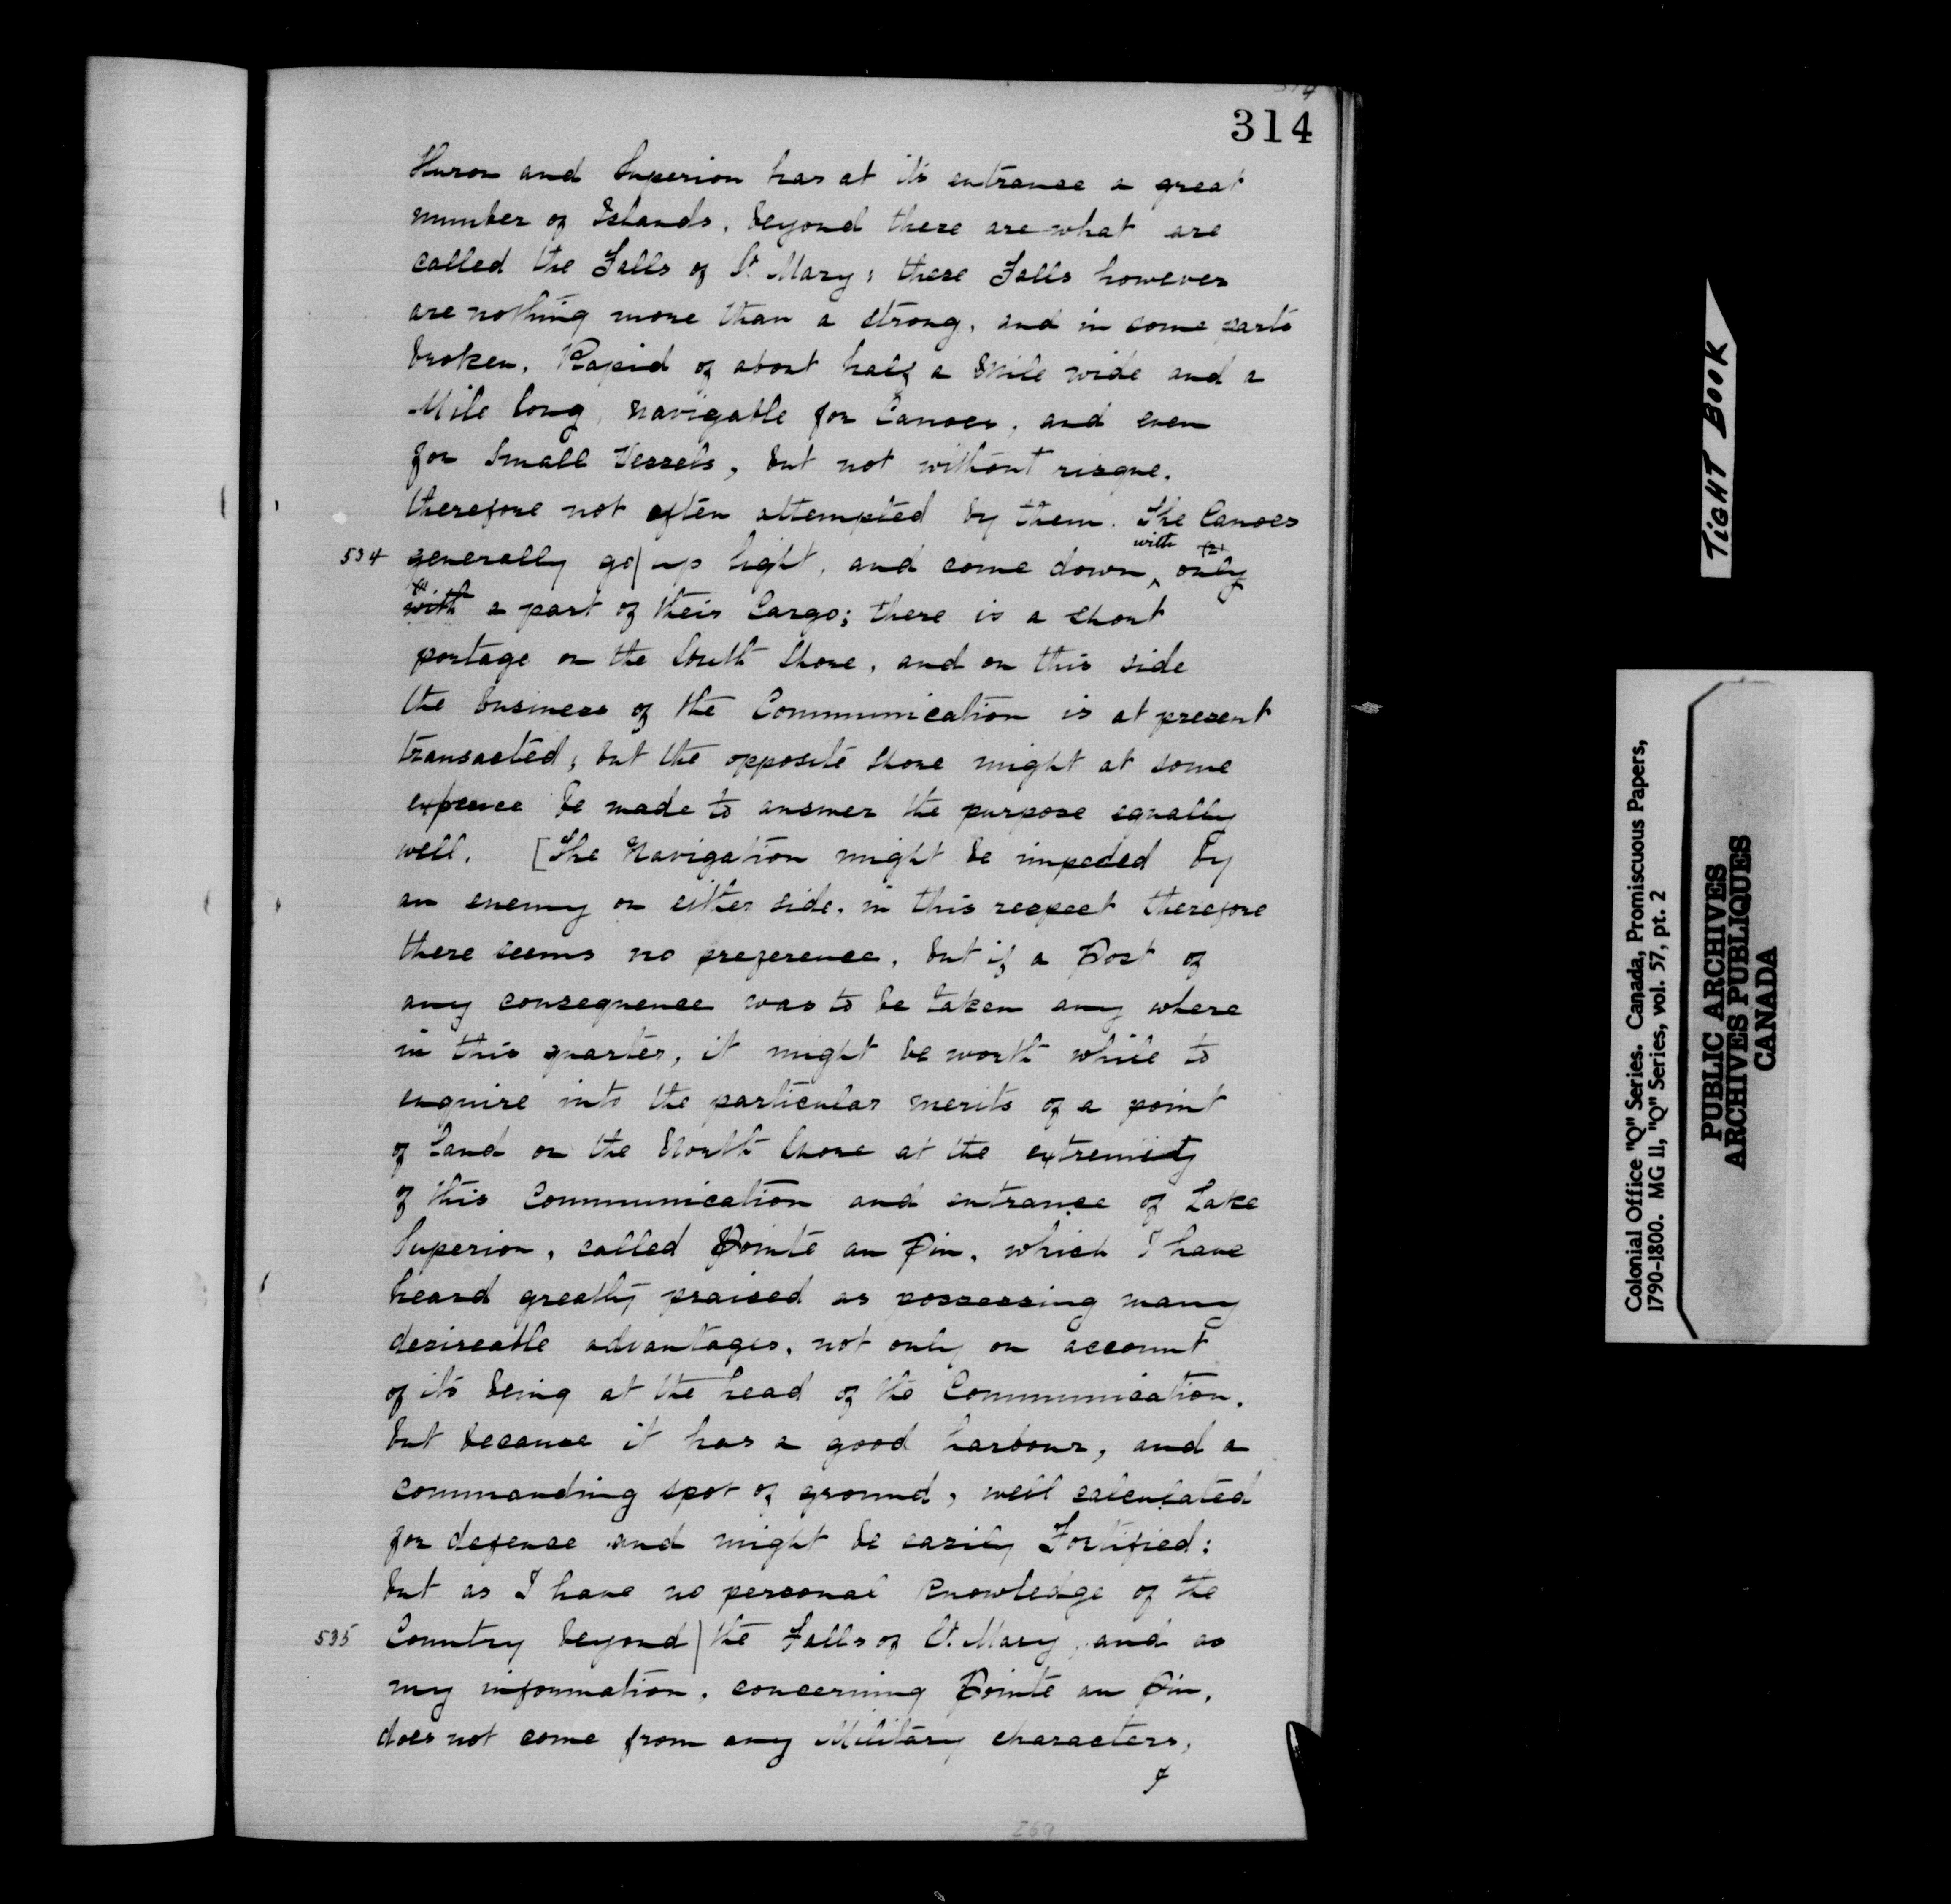 314
Huron and Superior has at its entrance a great
number of Islands, beyond there are what are
called the Falls of St Mary; these Falls however
are nothing more than a strong, and in some parts
broken, Rapid of about half a Mile wide and a
Mile long, navigable for Canoes, and even
for Small Vessels, but not without risque,
therefore not often attempted by them. The Canoes
534 generally go | up light, and come down ^ with only
with a part of their Cargo; there is a short
portage on the South Shore, and on this side
the business of the Communication is at present
transacted, but the opposite shore might at some
expence be made to answer the purpose equally
well. [The Navigation might be impeded by
an enemy on either side, in this respect therefore
there seems no preference, but if a Post of
any consequence was to be taken any where
in this quarter, it might be worth while to
enquire into the particular merits of a point
of Land on the North Shore at the extremity
of this Communication and entrance of Lake
Superior, called Pointe au Pin, which I have
heard greatly praised as possessing many
desireable advantages, not only on account
of its being at the head of the Communication,
but because it has a good harbour, and a
commanding spot of ground, well calculated
for defence and might be easily Fortified:
but as I have no personal knowledge of the
535 Country beyond | the Falls of St. Mary, and as
my information, concerning Pointe au Pin,
does not come from any Military characters,
I
269
TIGHT BOOK
Colonial Office "Q" Series. Canada, Promiscuous Papers,
1790-1800. MG 11, "Q" Series, vol. 57, pt. 2
PUBLIC ARCHIVES
ARCHIVES PUBLIQUES
CANADA